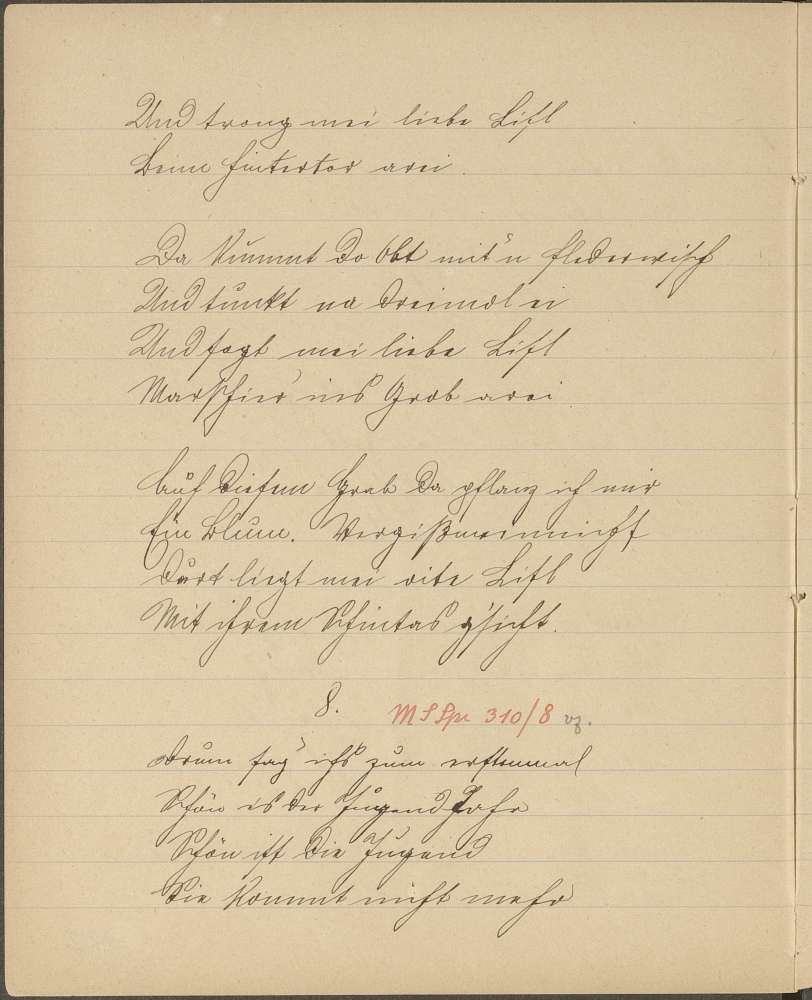 Und trong mei liebe Lisl
Beim hintertor arei.
Da kummt do Obt mit'n flederwisch
Und tunkt na dreimol ei
Und sagt mei liebe Lisl
Marschier' ins Grob arei
Auf diesem Grab da pflanz ich mir
Ein Blum. Vergißmeinnicht
Durt liegt mei olte Lisl
Mit ihrem Schintasg'sicht.
8. MS Spr 310/8
Drum sag' ichs zum erstenmal
Schön is der Jugend Jahr
Schön ist die Jugend
Sie kommt nicht mehr